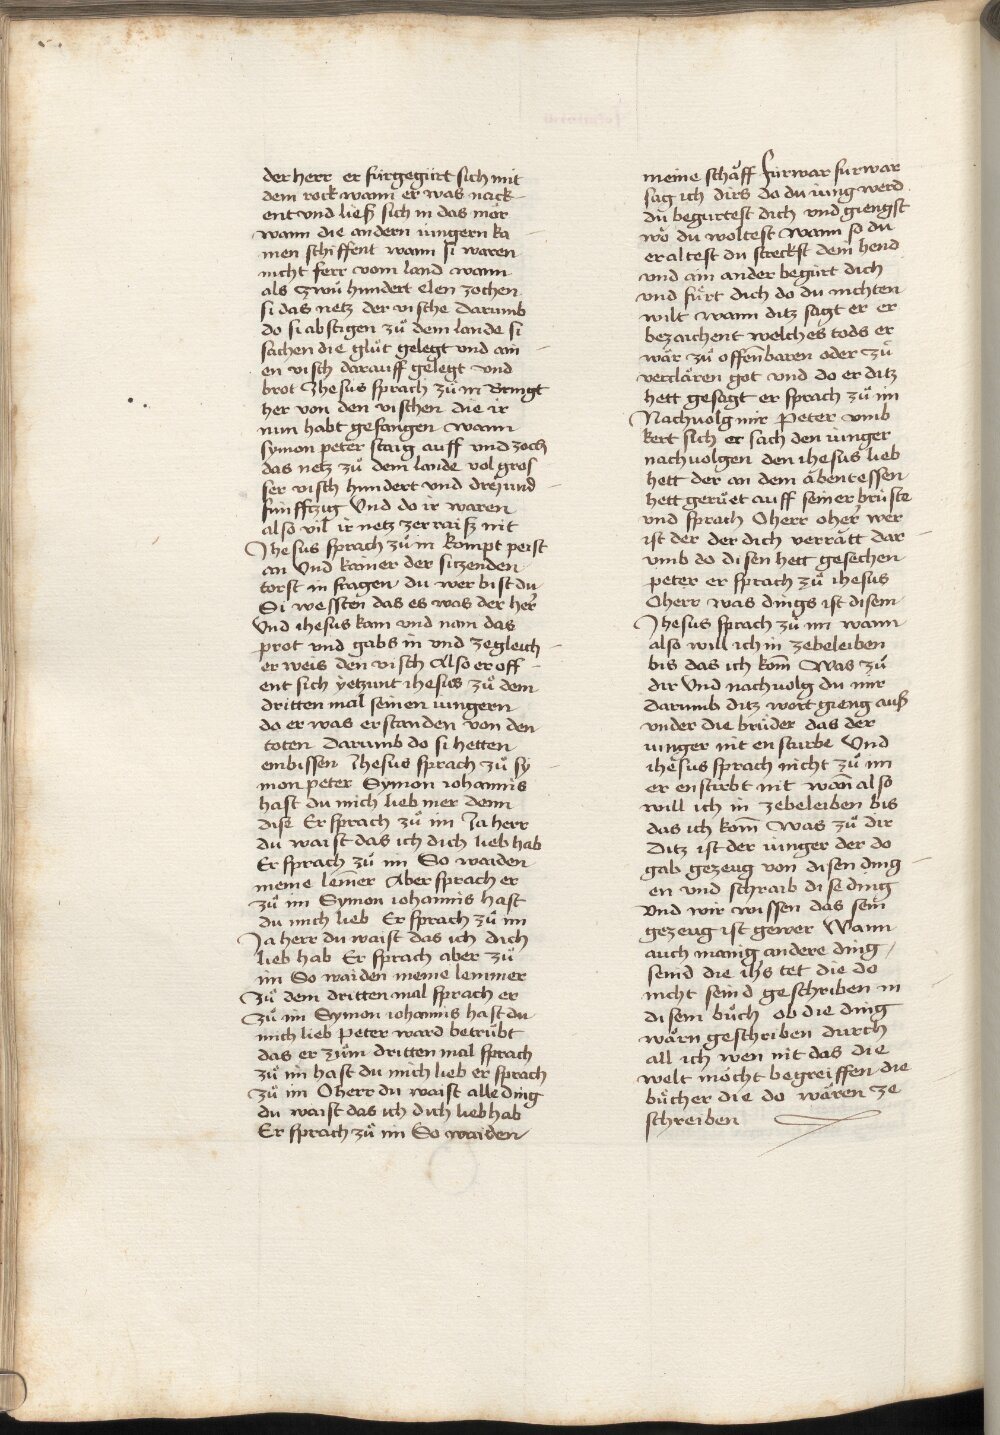 der herr er fürgegürt sich mit
dem rock wann er was nack
ent vnd ließ sich in das mör
wann die andern iungern ka
men schiffent wann si waren
nicht ferr vom land wann
als zwů hundert elen zochen
si das netz der vische Darumb
do si abstigen zů dem lande si
sachen die glůt gelegt vnd ain
en visch darauff gelegt vnd
brot Jhesus sprach zů in Bringt
her von den vischen die ir
nun habt gefangen wann
symon peter staig auff vnd zoch
das netz zů dem lande vol gros
ser visch hundert vnd dreÿ und
funfftzig Vnd do ir waren
also vil ir netz zerraiß nit
Jhesus sprach zů in kompt peist
an Vnd kainer der sitzenden
torst in fragen du wer bist du
Si wessten das es was der her
Vnd ihesus kam vnd nam das
prot vnd gabs in vnd zegleich
er weis den visch Also er off
ent sich ÿetzunt ihesus zů dem
dritten mal seinen iungern
da er was erstanden von den
toten Darumb do si hetten
embissen Jhesus sprach zů sy
mon peter Symon iohannis
hast du mich lieb mer denn
dise Er sprach zů im Ja herr
du waist das ich dich lieb hab
Er sprach zů im So waiden
meine lemer Aber sprach er
zů im Symon iohannis hast
du mich lieb Er sprach zů im
Ja herr du waist das ich dich
lieb hab Er sprach aber zů
im So waiden meine lemmer
Zů dem dritten mal sprach er
zů im Symon iohannis hast du
mich lieb Peter ward betrübt
das er zům dritten mal sprach
zů im hast du mich lieb er sprach
zů im O herr du waist alle ding
du waist das ich dich lieb hab
Er sprach zů im So waiden
meine schäff Fürwar fürwar
sag ich dirs do du iung werd
du begurtest dich vnd giengst
wo du woltest wann so du
eraltest du streckst dein hend
vnd ain ander begürt dich
vnd fürt dich do du nichten
wilt wann ditz sagt er er
bezaichent welches tods er
wär zů offenbaren oder zů
verclären got vnd do er ditz
hett gesagt er sprach zů im
Nachuolg mir Peter vmb
kert sich er sach den iunger
nachuolgen den ihesus lieb
hett der an dem äbentessen
hett gerůet auff seiner brüste
vnd sprach O herr o her wer
ist der der dich verrätt Dar
vmb do disen hett gesechen
peter er sprach zů ihesus
O herr was dings ist disem
Jhesus sprach zů im wann
also will ich in zebeleiben
bis das ich kom̄ Was zů
dir Vnd nachuolg du mir
Darumb ditz wort gieng auß
vnder die brůder das der
iunger nit en sturbe Vnd
ihesus sprach nicht zů im
er enstirbt nit wan̄ also
will ich in zebeleiben bis
das ich kom̄ Was zů dir
Ditz ist der iunger der do
gab gezeug von disen ding
en vnd schraib dise ding
Vnd wir wissen das sein
gezeug ist gewer Wann
auch manig andere ding
seind die ihs tet die do
nicht seind geschriben in
disem bůch ob die ding
wärn geschriben durch
all ich wen nit das die
welt möcht begreiffen die
bücher die do wären ze
schreiben